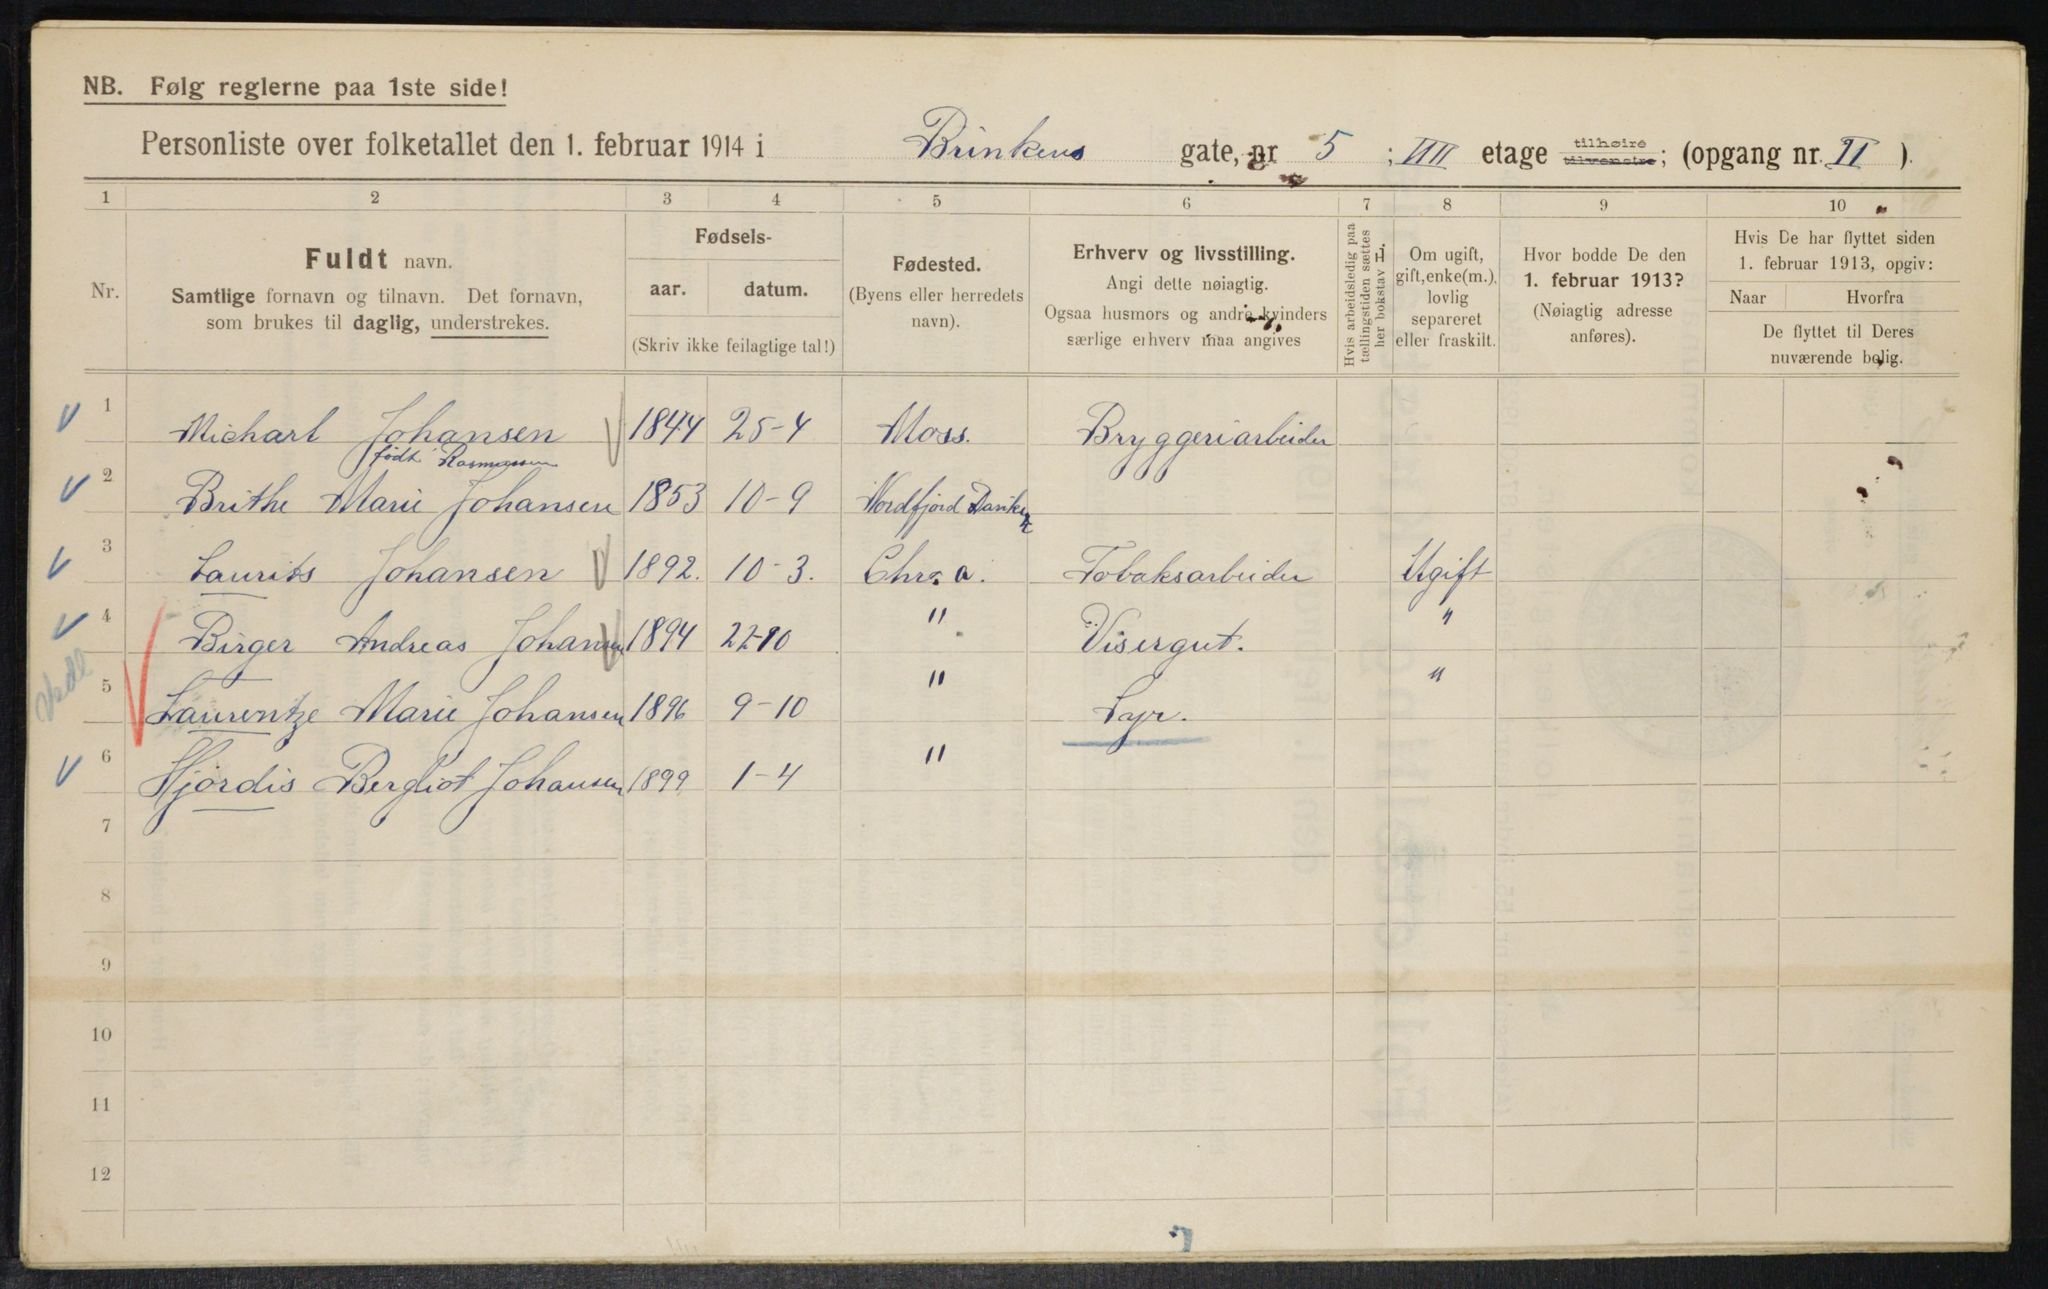 NB. Følg reglerne paa 1ste side!
Personliste over folketallet den 1. februar 1914 i Brinkens gate, nr 5 ; VIII etage tilhøire tilvenstre; (opgang nr. II ).
1 2 3 4 5 6 7 8 9 10
Nr.
Fuldt navn.
Samtlige fornavn og tilnavn. Det fornavn,
som brukes til daglig, understrekes.
Fødsels-
aar. datum.
(Skriv ikke feilagtige tal!)
Fødested.
(Byens eller herredets
navn).
Erhverv og livsstilling.
Angi dette nøiagtig.
Ogsaa husmors og andre kvinders
særlige erhverv maa angives
Hvis arbeidsledig paa
tællingstiden sættes
her bokstav L.
Om ugift,
gift, enke(m.),
lovlig
separeret
eller fraskilt.
Hvor bodde De den
1. februar 1913?
(Nøiagtig adresse
anføres).
Hvis De har flyttet siden
1. februar 1913, opgiv:
Naar Hvorfra
De flyttet til Deres
nuværende bolig.
1 Michael Johansen 1844 25-4 Moss. Bryggeriarbeider
født Rasmussen
2 Brithe Marie Johansen 1853 10-9 Nordfjord
3 Laurits Johansen 1892. 10-3. Chr.a. Tobaksarbeider Ugift
4 Birger Andreas Johansen 1894 22-10 " Visergut. "
5 Laurentze Marie Johansen 1896 9-10 " Syr. "
6 Hjørdis Bergliot Johansen 1899 1-4 "
7
8
9
10
11
12